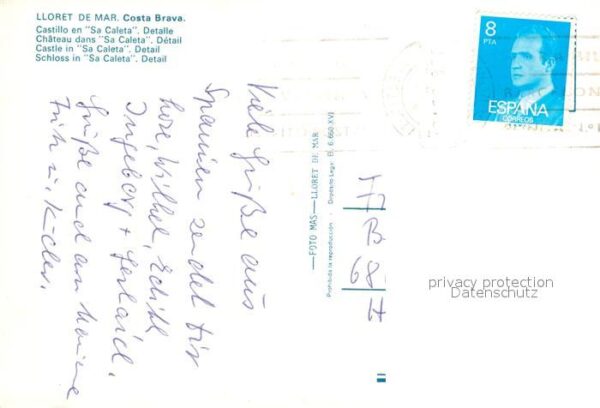 LLORET DE MAR. Costa Brava.
Castillo en "Sa Caleta". Detalle
Château dans "Sa Caleta". Détail
Castle in "Sa Caleta". Detail
Schloss in "Sa Caleta". Detail
8
PTA
ESPAÑA
CORREOS
Viele Grüße aus
Spanien sendet Dir
Wilhel, Edith
Ingeborg + Gerhard.
Grüße auch an
Kinder.
FOTO MAS — LLORET DE MAR
Prohibida la reproducción - Depósito Legal B. 6.660-XVI
privacy protection
Datenschutz